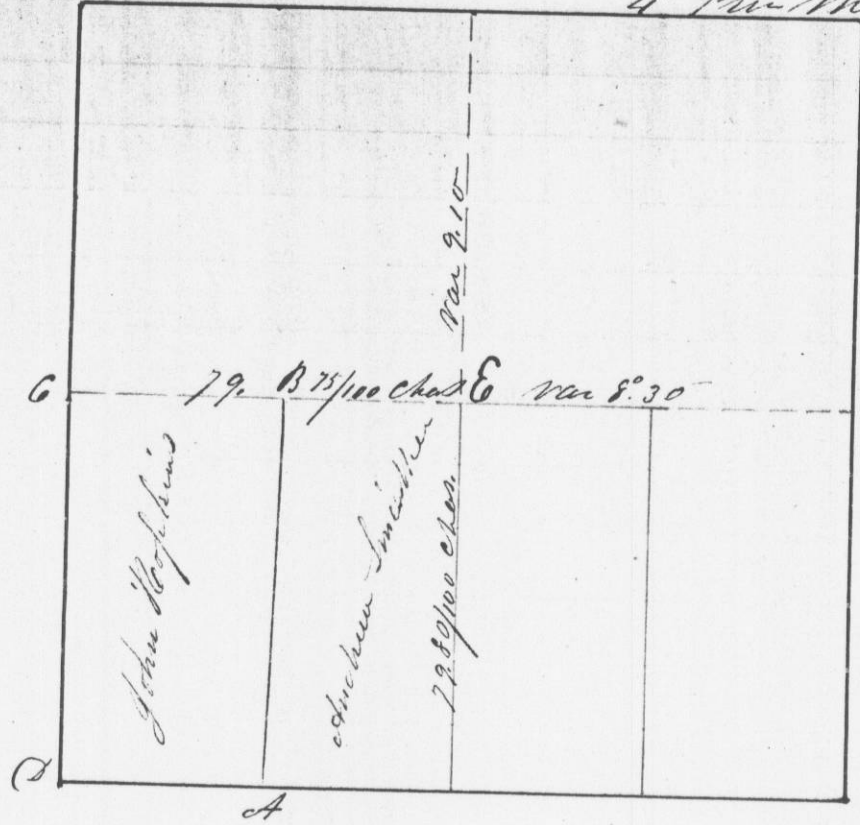 4
var 9.10
C 79. B 75/100 chas E var 8°.30
John Hopkins
Andrew
79.80/100 chas.
D
A